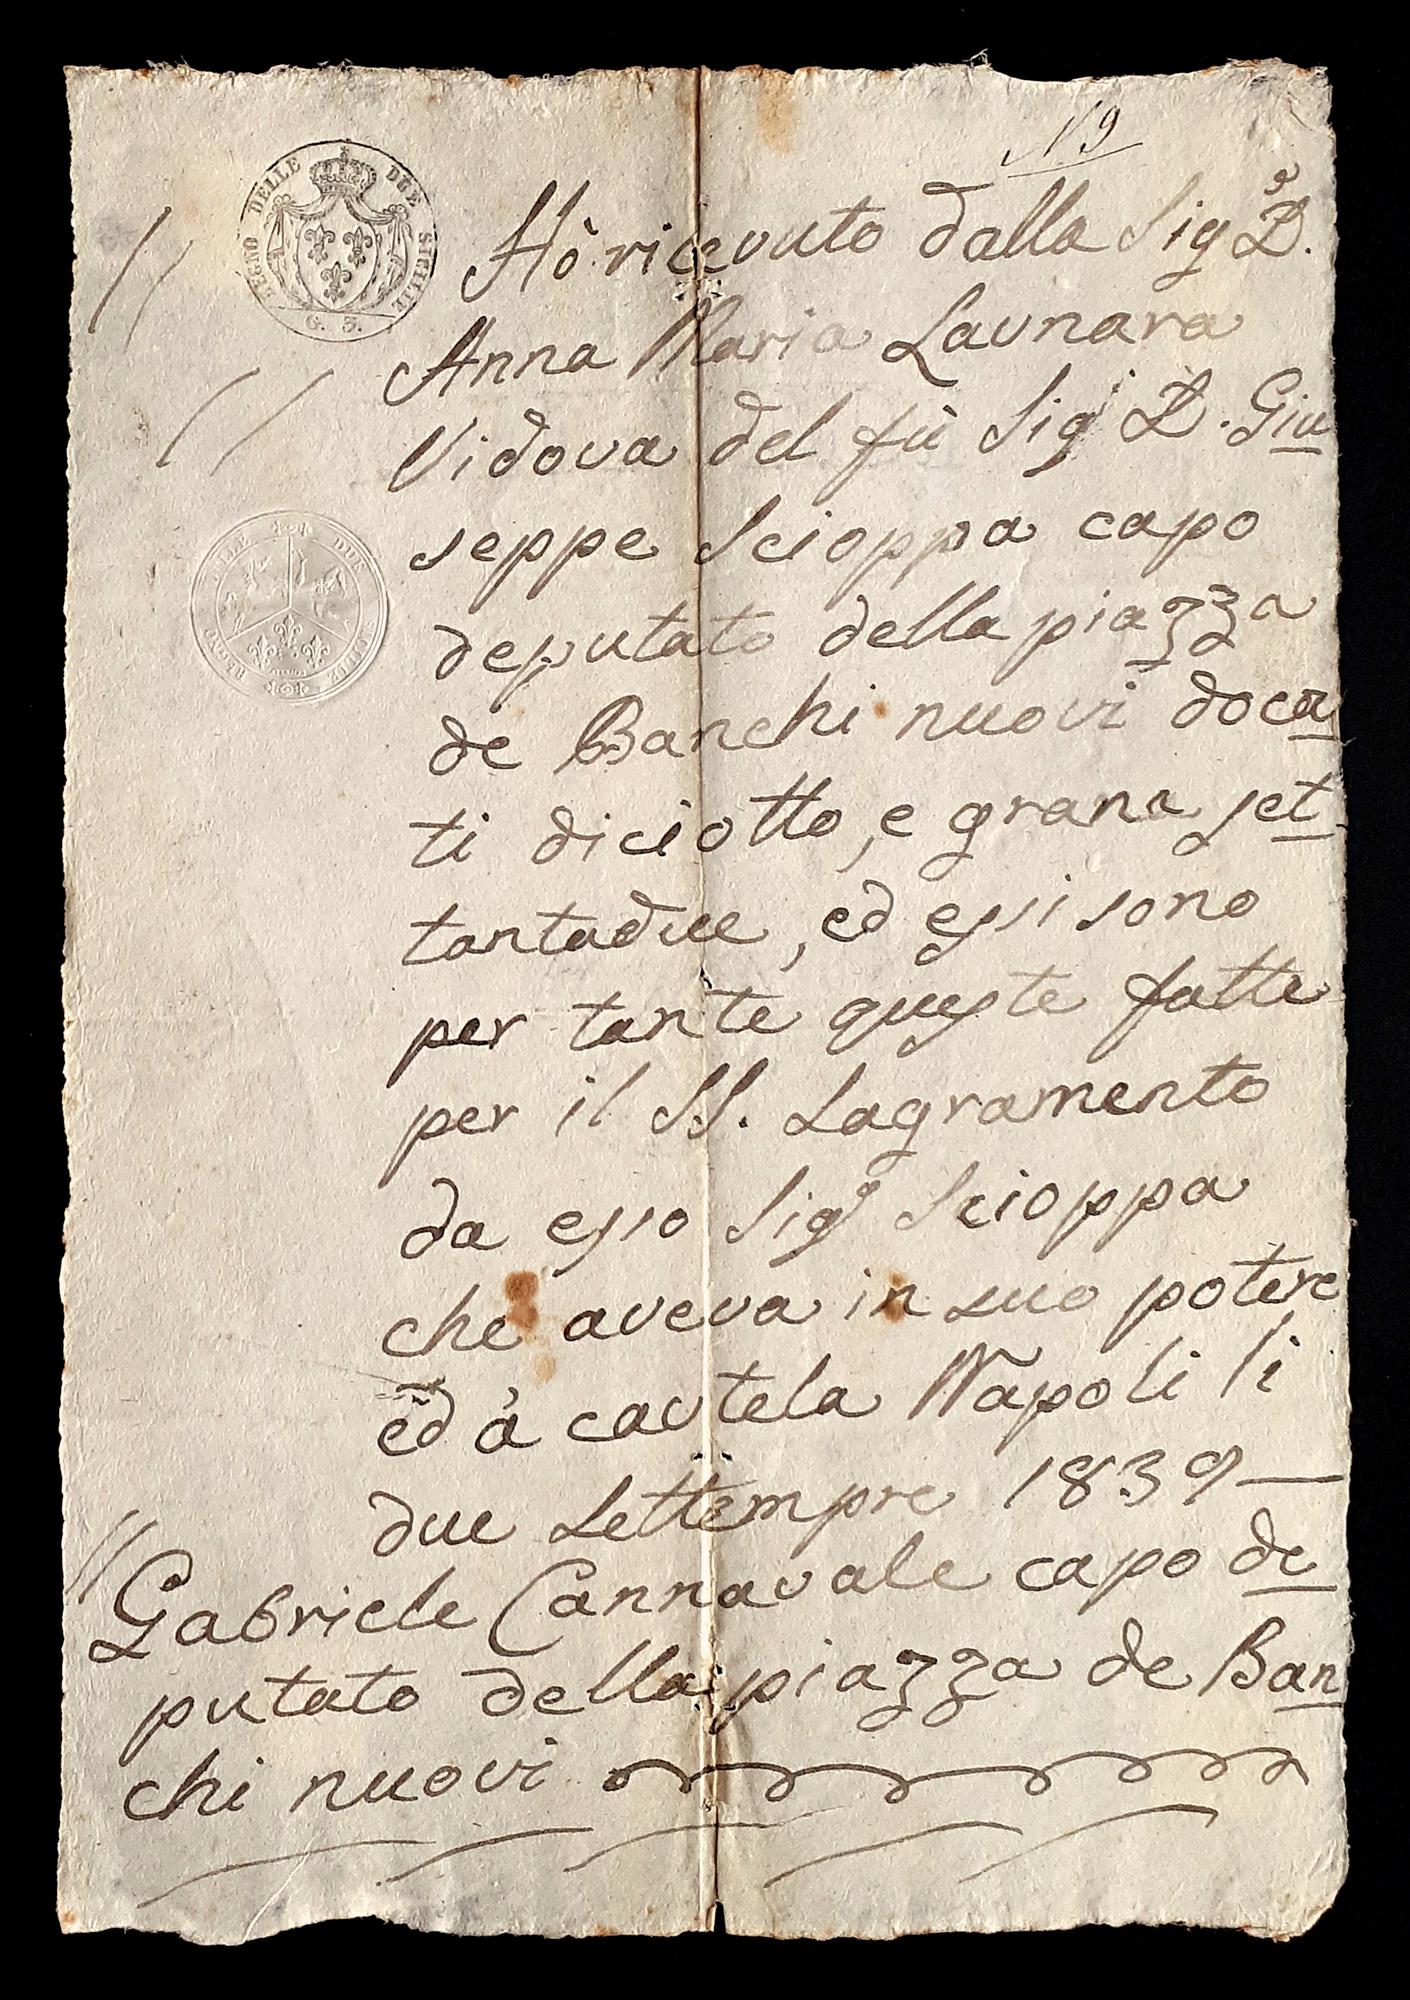 N 9
REGNO DELLE DUE SICILIE
G. 3.
Hò ricevuto dalla Sigra D.
Anna Maria Launara
Vidova del fù Sigr D. Giu
seppe Scioppa capo
deputato della piazza
de Banchi nuovi doca
ti diciotto, e grana set
tantadue, ed essi sono
per tante queste fatte
per il SS. Sagramento
da esso Sigr Scioppa
che aveva in suo potere
ed à cautela Napoli li
due Settempre 1839 —
Gabriele Cannavale capo de
putato della piazza de Ban
chi nuovi
REGNO DELLE DUE SICILIE